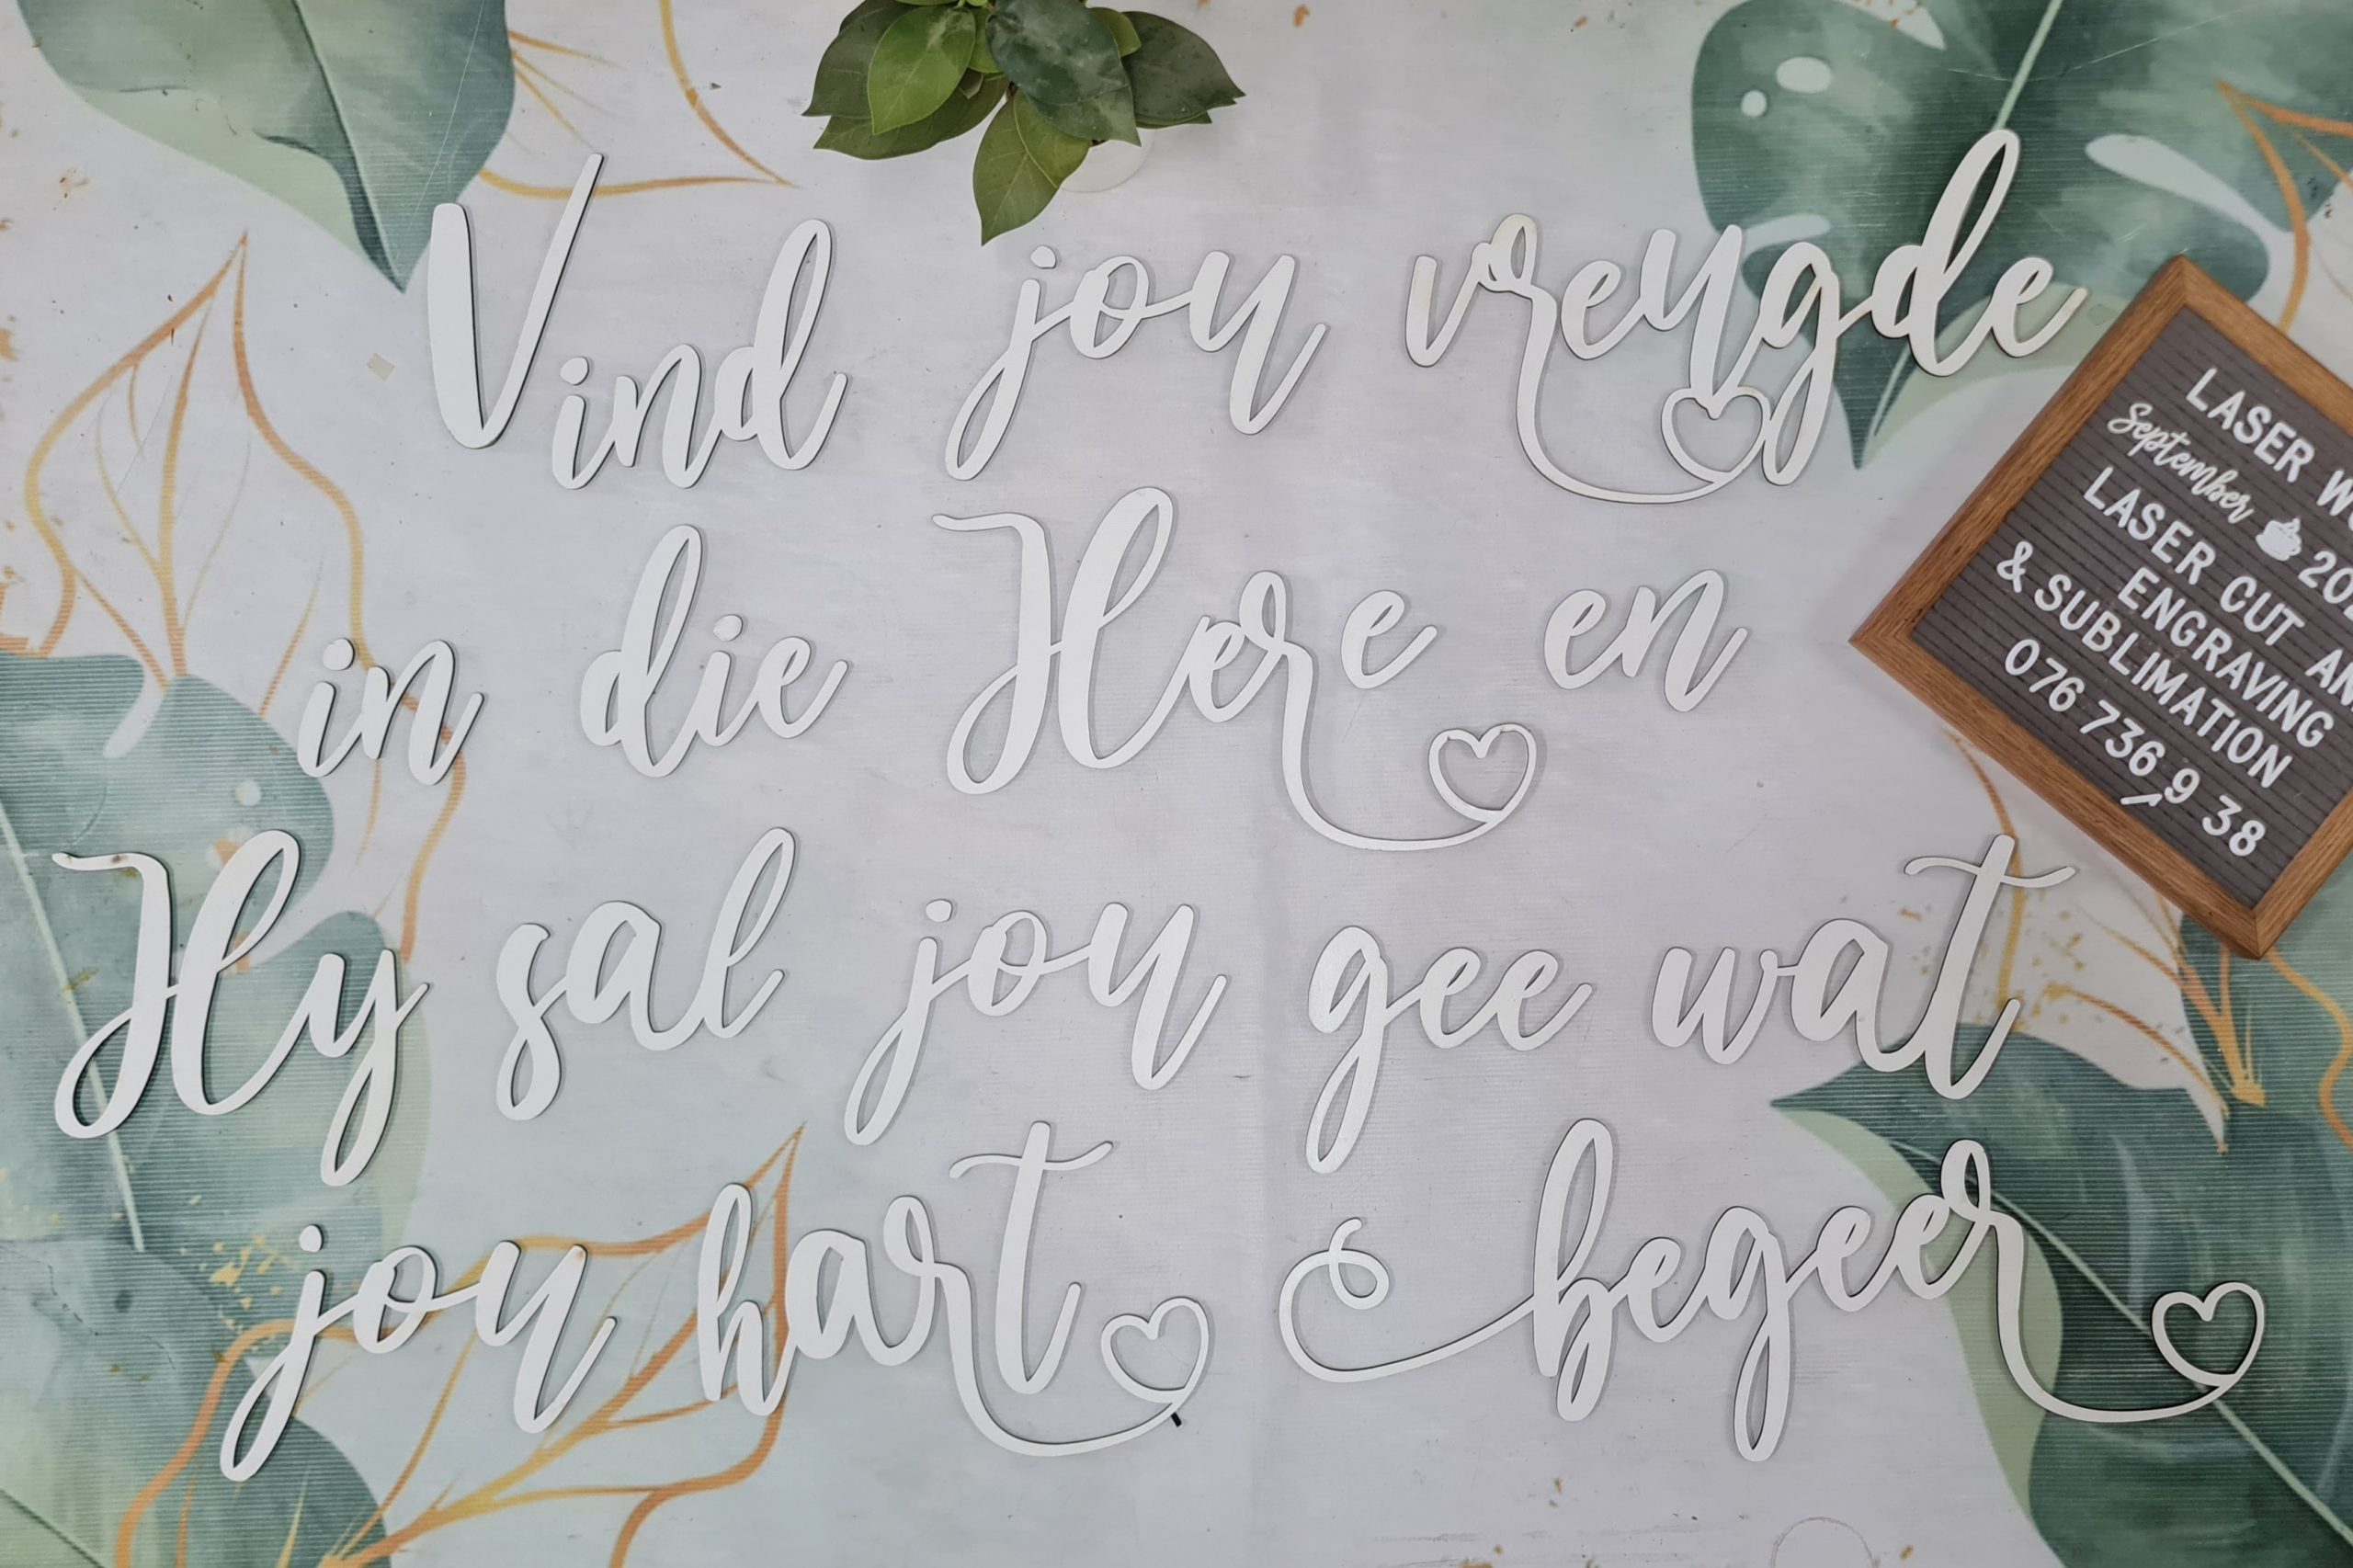 Vind jou vreugde
in die Here en
Hy sal jou gee wat
jou hart begeer
LASER
September
LASER CUT
ENGRAVING
& SUBLIMATION
076 736 9 38